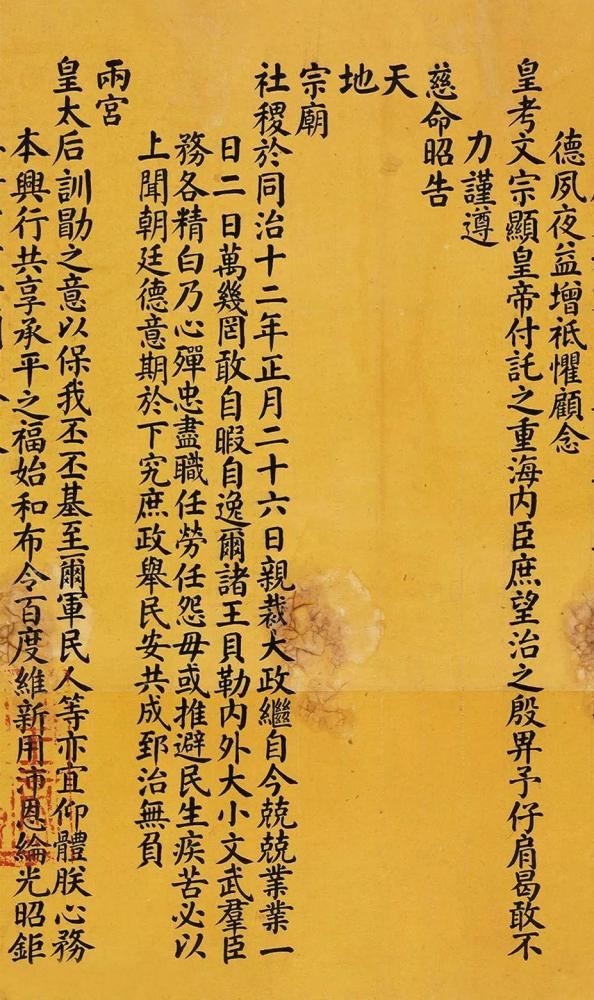 德夙夜益增祗懼顧念
皇考文宗顯皇帝付託之重海內臣庶望治之殷畀予仔肩曷敢不
力謹遵
慈命昭告
天
地
宗廟
社稷於同治十二年正月二十六日親裁大政繼自今兢兢業業一
日二日萬幾罔敢自暇自逸爾諸王貝勒內外大小文武羣臣
務各精白乃心殫忠盡職任勞任怨毋或推避民生疾苦必以
上聞朝廷德意期於下究庶政舉民安共成郅治無負
兩宮
皇太后訓勖之意以保我丕丕基至爾軍民人等亦宜仰體朕心務
本興行共享承平之福始和布令百度維新用沛恩綸光昭鉅